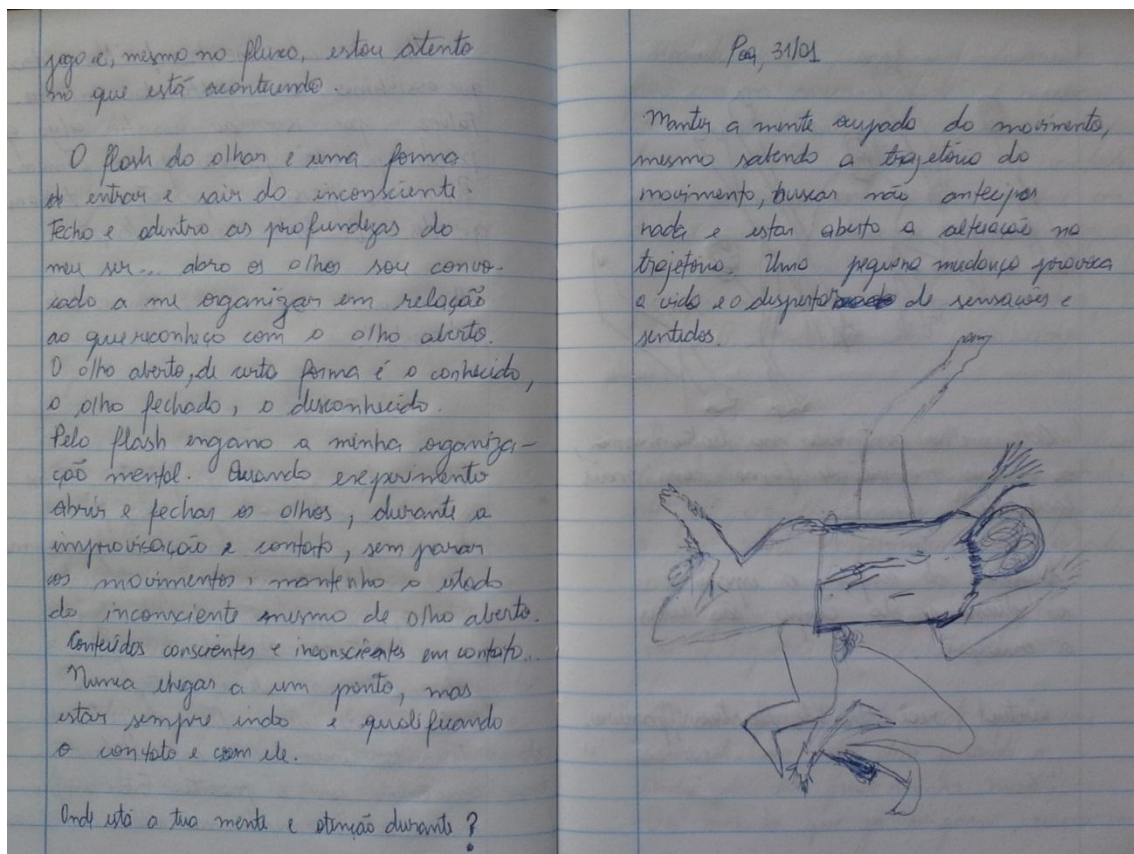 jogo e, mesmo no fluxo, estou atento
no que está acontecendo.
O flash do olhar é uma forma
de entrar e sair do inconsciente.
Fecho e adentro as profundezas do
meu ser... abro os olhos sou convo-
cado a me organizar em relação
ao que reconheço com o olho aberto.
O olho aberto, de certa forma é o conhecido,
o olho fechado, o desconhecido.
Pelo flash engano a minha organiza-
ção mental. Quando experimento
abrir e fechar os olhos, durante a
improvisação e contato, sem parar
os movimentos, mantenho o estado
do inconsciente mesmo de olho aberto.
Conteúdos conscientes e inconscientes em contato...
Nunca chegar a um ponto, mas
estar sempre indo e qualificando
o contato e com ele.
Onde está a tua mente e atenção durante?
31/01
Manter a mente ocupada do movimento,
mesmo sabendo a trajetória do
movimento, buscar não antecipar
nada e estar aberto a alteração na
trajetória. Uma pequena mudança provoca
a vida e o despertar de sensações e
sentidos.